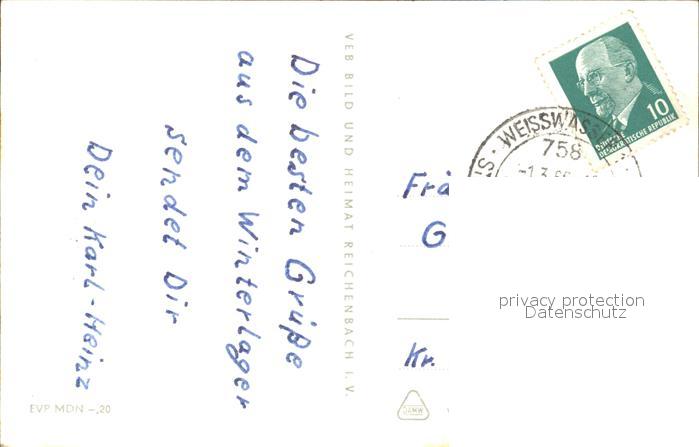 Die besten Grüße
aus dem Winterlager
sendet Dir
Dein Karl-Heinz
EVP MDN -,20
VEB BILD UND HEIMAT REICHENBACH I. V.
10
DEUTSCHE
DEMOKRATISCHE REPUBLIK
WEISSWASS
758
Frä
G
Kr.
privacy protection
Datenschutz
DAMW